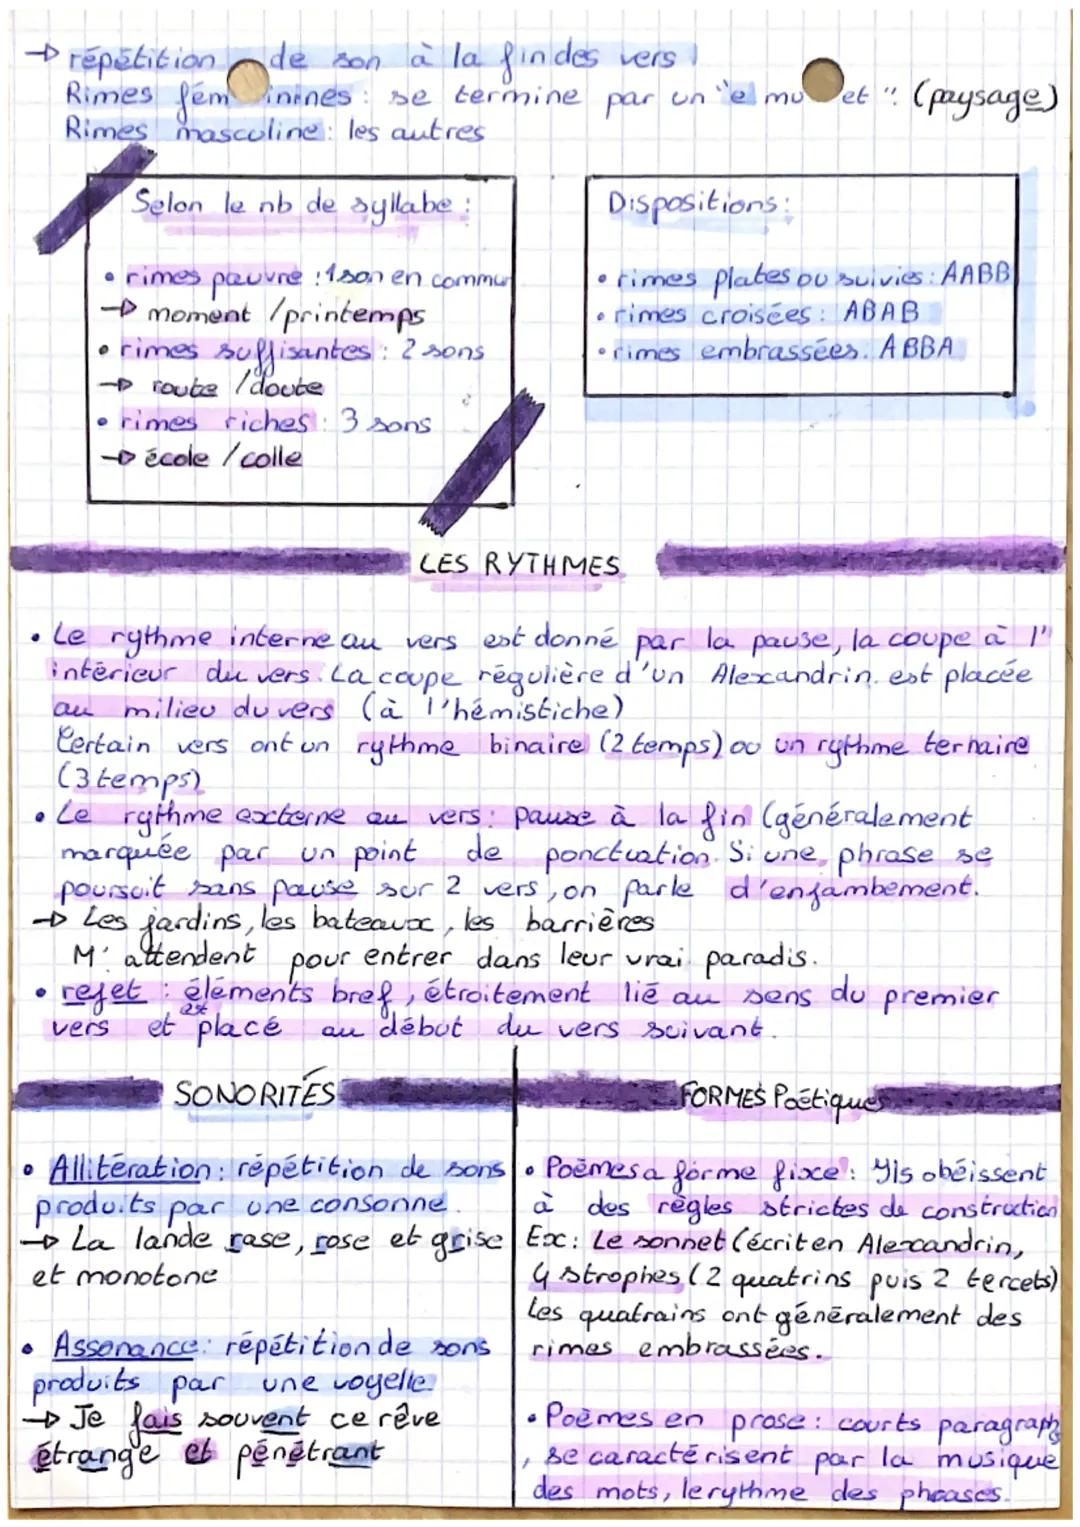 → répétition de son à la fin des vers
Rimes féminines : se termine par un "e muet" (paysage)
Rimes masculine : les autres
Selon le nb de syllabe :
• rimes pauvre : 1 son en commun
→ moment / printemps
• rimes suffisantes : 2 sons
→ route / doute
• rimes riches : 3 sons
→ école / colle
Dispositions :
• rimes plates ou suivies : AABB
• rimes croisées : ABAB
• rimes embrassées : ABBA
LES RYTHMES
• Le rythme interne au vers est donné par la pause, la coupe à l'
intérieur du vers. La coupe régulière d'un Alexandrin est placée
au milieu du vers (à l'hémistiche)
Certain vers ont un rythme binaire (2 temps) ou un rythme ternaire
(3 temps)
• Le rythme externe au vers : pause à la fin (généralement
marquée par un point de ponctuation. Si une phrase se
poursuit sans pause sur 2 vers, on parle d'enjambement.
→ Les jardins, les bateaux, les barrières
M'attendent pour entrer dans leur vrai paradis.
• rejet : éléments bref, étroitement lié au sens du premier
vers et est placé au début du vers suivant.
SONORITÉS
• Allitération : répétition de sons
produits par une consonne.
→ La lande rase, rose et grise
et monotone
• Assonance : répétition de sons
produits par une voyelle.
→ Je fais souvent ce rêve
étrange et pénétrant
FORMES Poétiques
• Poèmes a forme fixe : Ils obéissent
à des règles strictes de construction
Ex : Le sonnet (écrit en Alexandrin,
4 strophes (2 quatrins puis 2 tercets)
Les quatrains ont généralement des
rimes embrassées.
• Poèmes en prose : courts paragraph
, se caractérisent par la musique
des mots, le rythme des phrases.